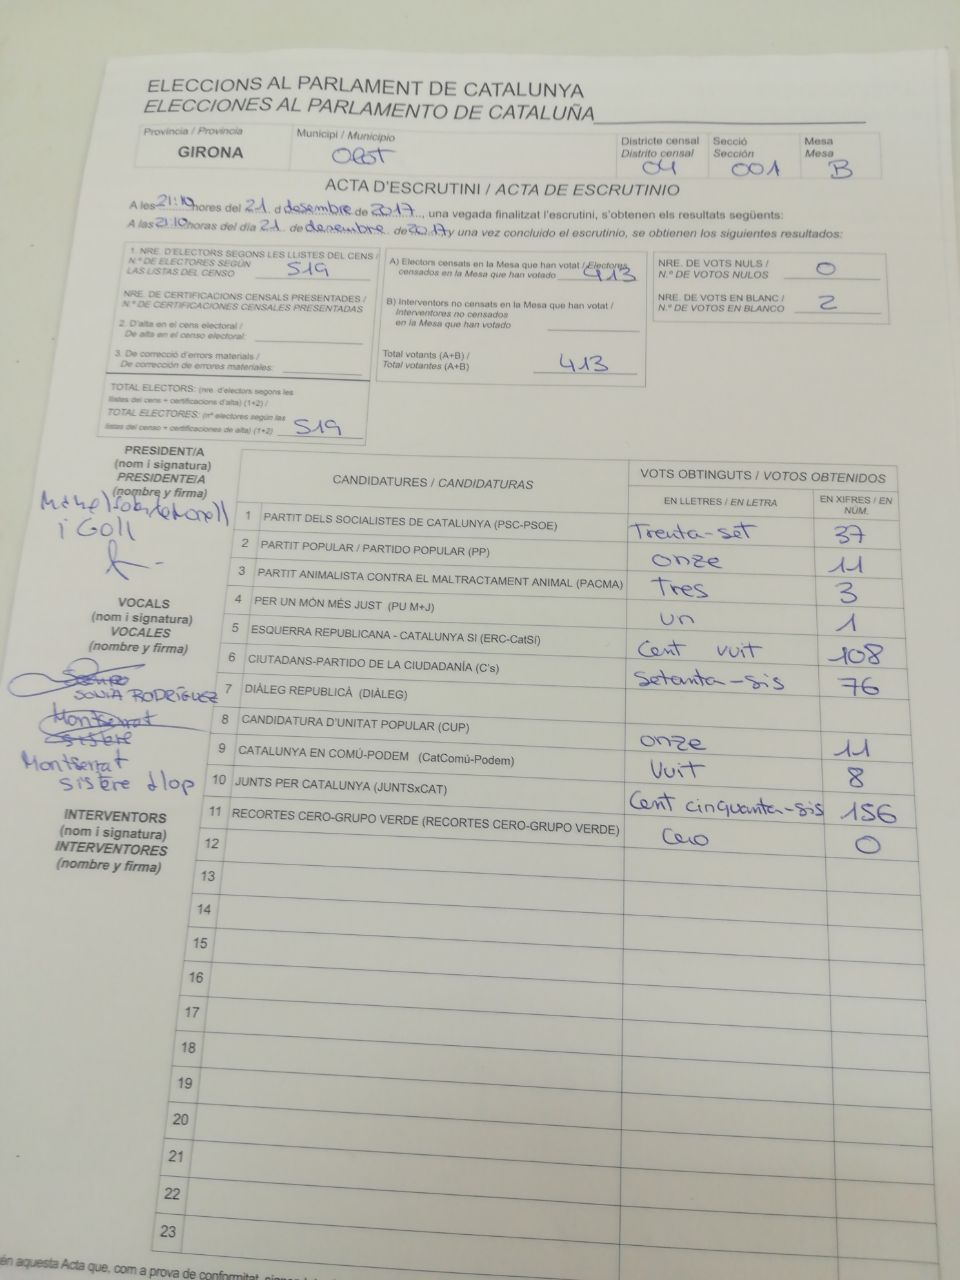 ELECCIONS AL PARLAMENT DE CATALUNYA
ELECCIONES AL PARLAMENTO DE CATALUÑA
Província / Provincia
GIRONA
Municipi / Municipio
OLOT
Districte censal
Distrito censal
04
Secció
Sección
001
Mesa
Mesa
B
ACTA D'ESCRUTINI / ACTA DE ESCRUTINIO
A les 21:10 hores del 21 d desembre de 2017, una vegada finalitzat l'escrutini, s'obtenen els resultats següents:
A las 21:10 horas del día 21 de desembre de 2017 y una vez concluido el escrutinio, se obtienen los siguientes resultados:
1. NRE. D'ELECTORS SEGONS LES LLISTES DEL CENS /
N.º DE ELECTORES SEGÚN
LAS LISTAS DEL CENSO 519
NRE. DE CERTIFICACIONS CENSALS PRESENTADES /
N.º DE CERTIFICACIONES CENSALES PRESENTADAS
2. D'alta en el cens electoral /
De alta en el censo electoral:
3. De correcció d'errors materials /
De corrección de errores materiales:
TOTAL ELECTORS: (nre. d'electors segons les
llistes del cens + certificacions d'alta) (1+2) /
TOTAL ELECTORES: (nº electores según las
listas del censo + certificaciones de alta) (1+2) 519
A) Electors censats en la Mesa que han votat / Electores
censados en la Mesa que han votado 413
B) Interventors no censats en la Mesa que han votat /
Interventores no censados
en la Mesa que han votado
Total votants (A+B) /
Total votantes (A+B) 413
NRE. DE VOTS NULS /
N.º DE VOTOS NULOS 0
NRE. DE VOTS EN BLANC /
N.º DE VOTOS EN BLANCO 2
PRESIDENT/A
(nom i signatura)
PRESIDENTE/A
(nombre y firma)
i Goll
VOCALS
(nom i signatura)
VOCALES
(nombre y firma)
SONIA RODRÍGUEZ
Montserrat
sistere
Montserrat
sistere llop
INTERVENTORS
(nom i signatura)
INTERVENTORES
(nombre y firma)
CANDIDATURES / CANDIDATURAS
VOTS OBTINGUTS / VOTOS OBTENIDOS
EN LLETRES / EN LETRA
EN XIFRES / EN
NÚM.
1 PARTIT DELS SOCIALISTES DE CATALUNYA (PSC-PSOE) Trenta-set 37
2 PARTIT POPULAR / PARTIDO POPULAR (PP) onze 11
3 PARTIT ANIMALISTA CONTRA EL MALTRACTAMENT ANIMAL (PACMA) Tres 3
4 PER UN MÓN MÉS JUST (PU M+J) un 1
5 ESQUERRA REPUBLICANA - CATALUNYA SÍ (ERC-CatSí) Cent vuit 108
6 CIUTADANS-PARTIDO DE LA CIUDADANÍA (C's) Setanta-sis 76
7 DIÀLEG REPUBLICÀ (DIÀLEG)
8 CANDIDATURA D'UNITAT POPULAR (CUP) onze 11
9 CATALUNYA EN COMÚ-PODEM (CatComú-Podem) Vuit 8
10 JUNTS PER CATALUNYA (JUNTSxCAT) Cent cinquanta-sis 156
11 RECORTES CERO-GRUPO VERDE (RECORTES CERO-GRUPO VERDE) Cero 0
12
13
14
15
16
17
18
19
20
21
22
23
én aquesta Acta que, com a prova de conformitat,